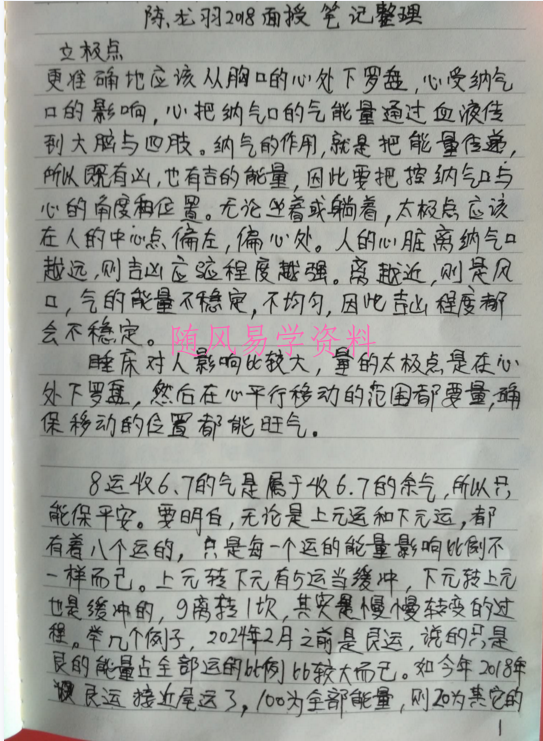 陈龙羽2018面授笔记整理
立极点
更准确地应该从胸口的心处下罗盘,心受纳气
口的影响,心把纳气口的气能量通过血液传
到大脑与四肢。纳气的作用,就是把能量传递,
所以既有凶,也有吉的能量,因此要把控纳气口与
心的角度和位置。无论坐着或躺着,太极点应该
在人的中心点偏左,偏心处。人的心脏离纳气口
越远,则吉凶应验程度越强。离越近,则是风
口,气的能量不稳定,不均匀,因此吉凶程度都
会不稳定。
随风易学资料
睡床对人影响比较大,量的太极点是在心
处下罗盘,然后在心平行移动的范围都要量,确
保移动的位置都能旺气。
8运收6.7的气是属于收6.7的余气,所以只
能保平安。要明白,无论是上元运和下元运,都
有着八个运的,只是每一个运的能量影响比例不
一样而已。上元转下元有5运当缓冲,下元转上元
也是缓冲的,9离转1坎,其实是慢慢转变的过
程。举几个例子,2024年2月之前是艮运,说的只是
艮的能量占全部运的比例比较大而已。如今年2018年
艮运接近尾运了,100为全部能量,则20为其它的
1